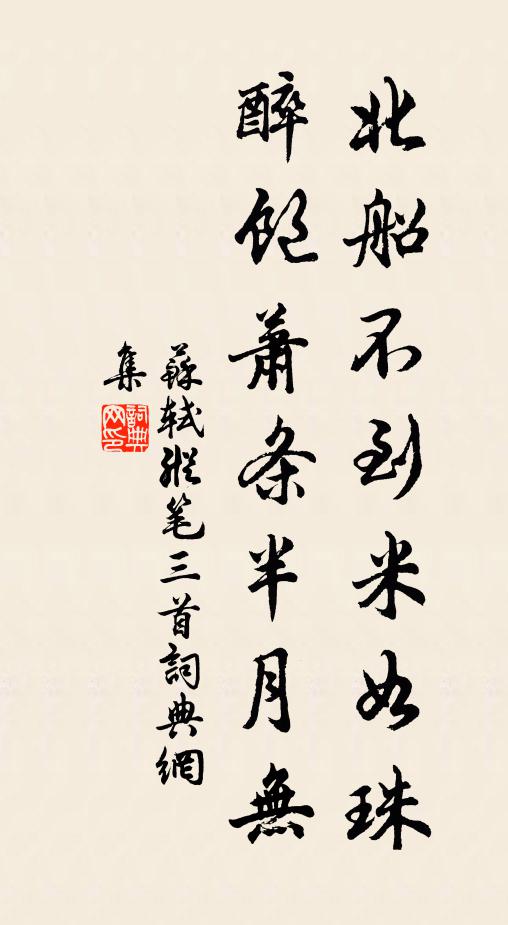 北船不到米如珠
醉飽蕭条半月無
蘇軾縱笔三首詞典網
集
詞典
网印